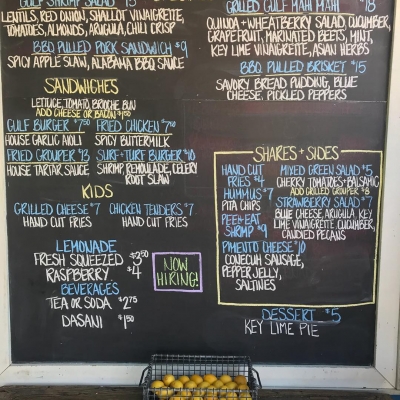 GULF SHRIMP SALAD 15
LENTILS, RED ONION, SHALLOT VINAIGRETTE,
TOMATOES, ALMONDS, ARUGULA, CHILI CRISP
BBQ PULLED PORK SANDWICH $9
SPICY APPLE SLAW, ALABAMA BBQ SAUCE
GRILLED GULF MAHI MAHI $18
QUINOA + WHEATBERRY SALAD, CUCUMBER,
GRAPEFRUIT, MARINATED BEETS, MINT,
KEY LIME VINAIGRETTE, ASIAN HERBS
BBQ PULLED BRISKET $15
SAVORY BREAD PUDDING, BLUE
CHEESE, PICKLED PEPPERS
SANDWICHES
LETTUCE, TOMATO, BRIOCHE BUN
ADD CHEESE OR BACON $1.50
GULF BURGER $7.50
HOUSE GARLIC AIOLI
FRIED CHICKEN $7.50
SPICY BUTTERMILK
FRIED GROUPER $13
HOUSE TARTAR SAUCE
SURF + TURF BURGER $10
SHRIMP, REMOULADE, CELERY
ROOT SLAW
KIDS
GRILLED CHEESE $7
HAND CUT FRIES
CHICKEN TENDERS $7
HAND CUT FRIES
LEMONADE
FRESH SQUEEZED $3.50
RASPBERRY $4
BEVERAGES
TEA OR SODA $2.75
DASANI $1.50
NOW
HIRING!
SHARES + SIDES
HAND CUT
FRIES $4
HUMMUS $7
PITA CHIPS
PEEL + EAT
SHRIMP $9
PIMENTO CHEESE $10
CONECUH SAUSAGE,
PEPPER JELLY,
SALTINES
MIXED GREEN SALAD $5
CHERRY TOMATOES + BALSAMIC
ADD GRILLED GROUPER $8
STRAWBERRY SALAD $7
BLUE CHEESE, ARUGULA, KEY
LIME VINAIGRETTE, CUCUMBER,
CANDIED PECANS
DESSERT $5
KEY LIME PIE